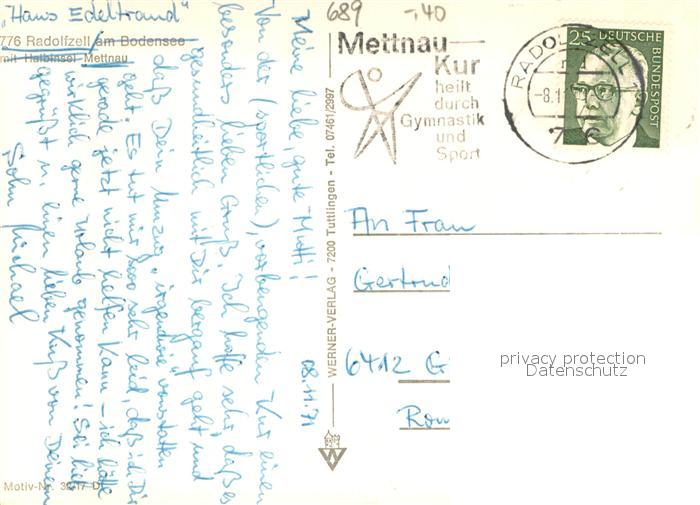 „Haus Edeltraud“
776 Radolfzell am Bodensee
mit Halbinsel Mettnau
689 -.40
Mettnau
Kur
heilt
durch
Gymnastik
und
Sport
RADOLFZELL
-8.11
25 DEUTSCHE BUNDESPOST
08.11.71
Meine liebe, gute Mutti!
Von der (sportlichen), vorbeugenden Kur einen
besonders lieben Gruß. Ich hoffe sehr, daß es
gesundheitlich mit Dir bergauf geht und
daß Dein Umzug irgendwie vonstatten
geht. Es tut mir soo sehr leid, daß ich Dir
gerade jetzt nicht helfen kann – ich hätte
wirklich gerne Urlaub genommen! Sei lieb
gegrüßt u. einen lieben Kuß von Deinem
Sohn Michael
WERNER-VERLAG - 7200 Tuttlingen - Tel. 07461/2997
An Frau
Gertrud
6412 G
Ron
privacy protection
Datenschutz
W
Motiv-Nr. 3217 D